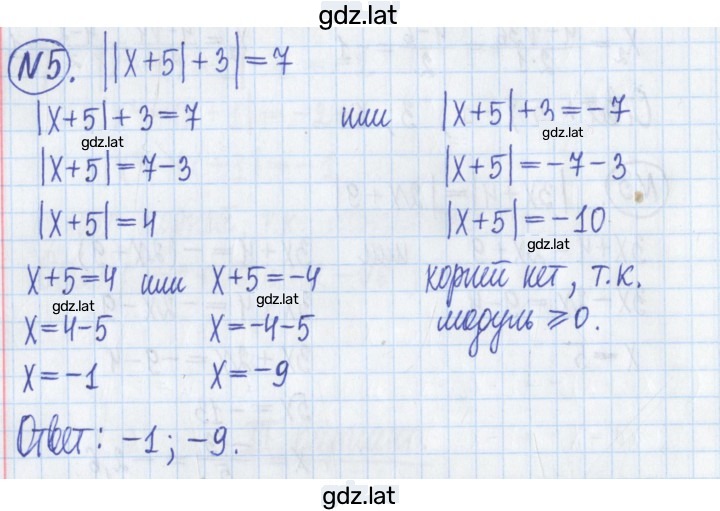 gdz.lat
№5. ||x+5|+3|=7
|x+5|+3=7 или |x+5|+3=-7
gdz.lat gdz.lat
|x+5|=7-3 |x+5|=-7-3
|x+5|=4 |x+5|=-10
gdz.lat
x+5=4 или x+5=-4 корней нет, т.к.
gdz.lat gdz.lat
x=4-5 x=-4-5 модуль ⩾0.
x=-1 x=-9
Ответ: -1; -9.
gdz.lat